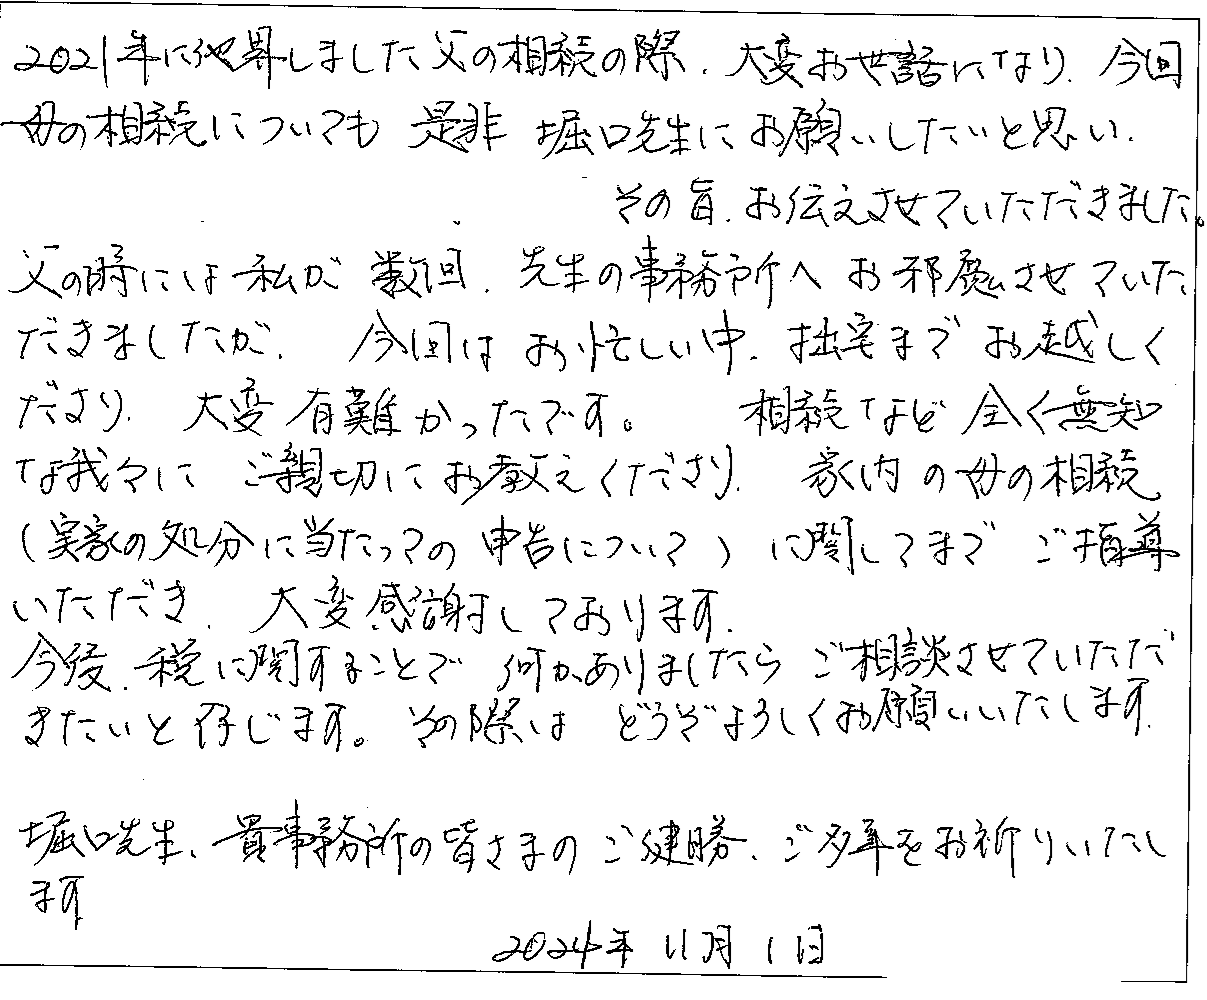 2021年に他界しました父の相続の際、大変お世話になり、今回
母の相続についても 是非 堀口先生にお願いしたいと思い、
その旨、お伝えさせていただだきました。
父の時には私が数回、先生の事務所へお邪魔させていた
だきましたが、今回はお忙しい中、拙宅までお越しく
ださり、大変有難かったです。 相続など全く無知
な我々に ご親切にお教えくださり、家内の母の相続
(実家の処分に当たっての申告について)に関してまで ご指導
いただき、大変感謝しております。
今後、税に関することで何かありましたら ご相談させていただ
きたいと存じます。その際は どうぞよろしくお願いいたします。
堀口先生、貴事務所の皆さまの ご健勝、ご多幸をお祈りいたし
ます
2024年 11月 1日